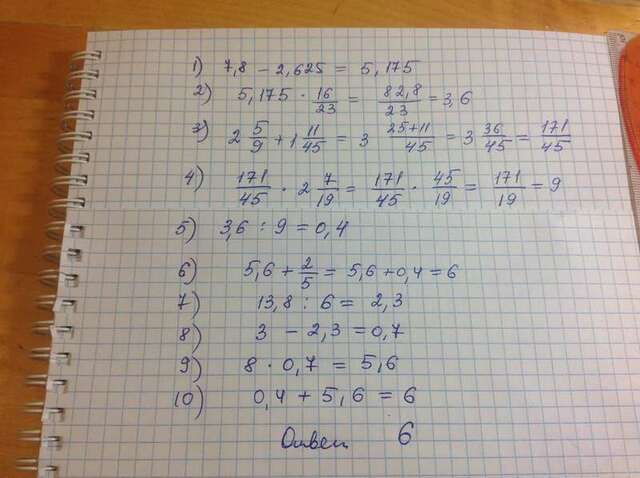 1) 7,8 - 2,625 = 5,175
2) 5,175 · 16/23 = 82,8/23 = 3,6
3) 2 5/9 + 1 11/45 = 3 25+11/45 = 3 36/45 = 171/45
4) 171/45 · 2 7/19 = 171/45 · 45/19 = 171/19 = 9
5) 3,6 : 9 = 0,4
6) 5,6 + 2/5 = 5,6 + 0,4 = 6
7) 13,8 : 6 = 2,3
8) 3 - 2,3 = 0,7
9) 8 · 0,7 = 5,6
10) 0,4 + 5,6 = 6
Ответ 6